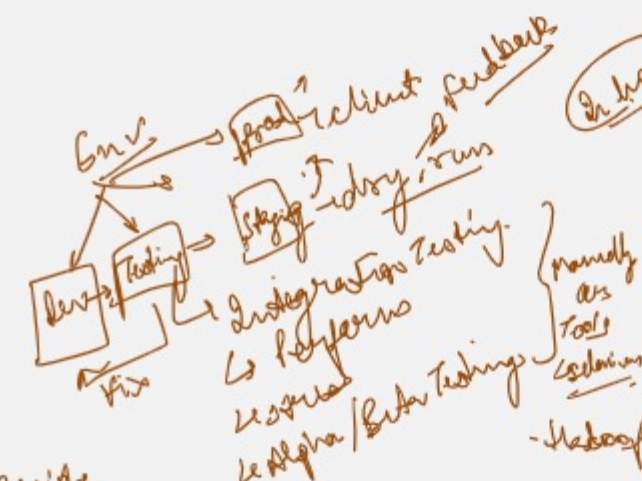 Env
Prod - client
Feedback
Staging - dry run
Dev
Testing
Fix
Integration Testing
Alpha/Beta Testing
manually
Tools